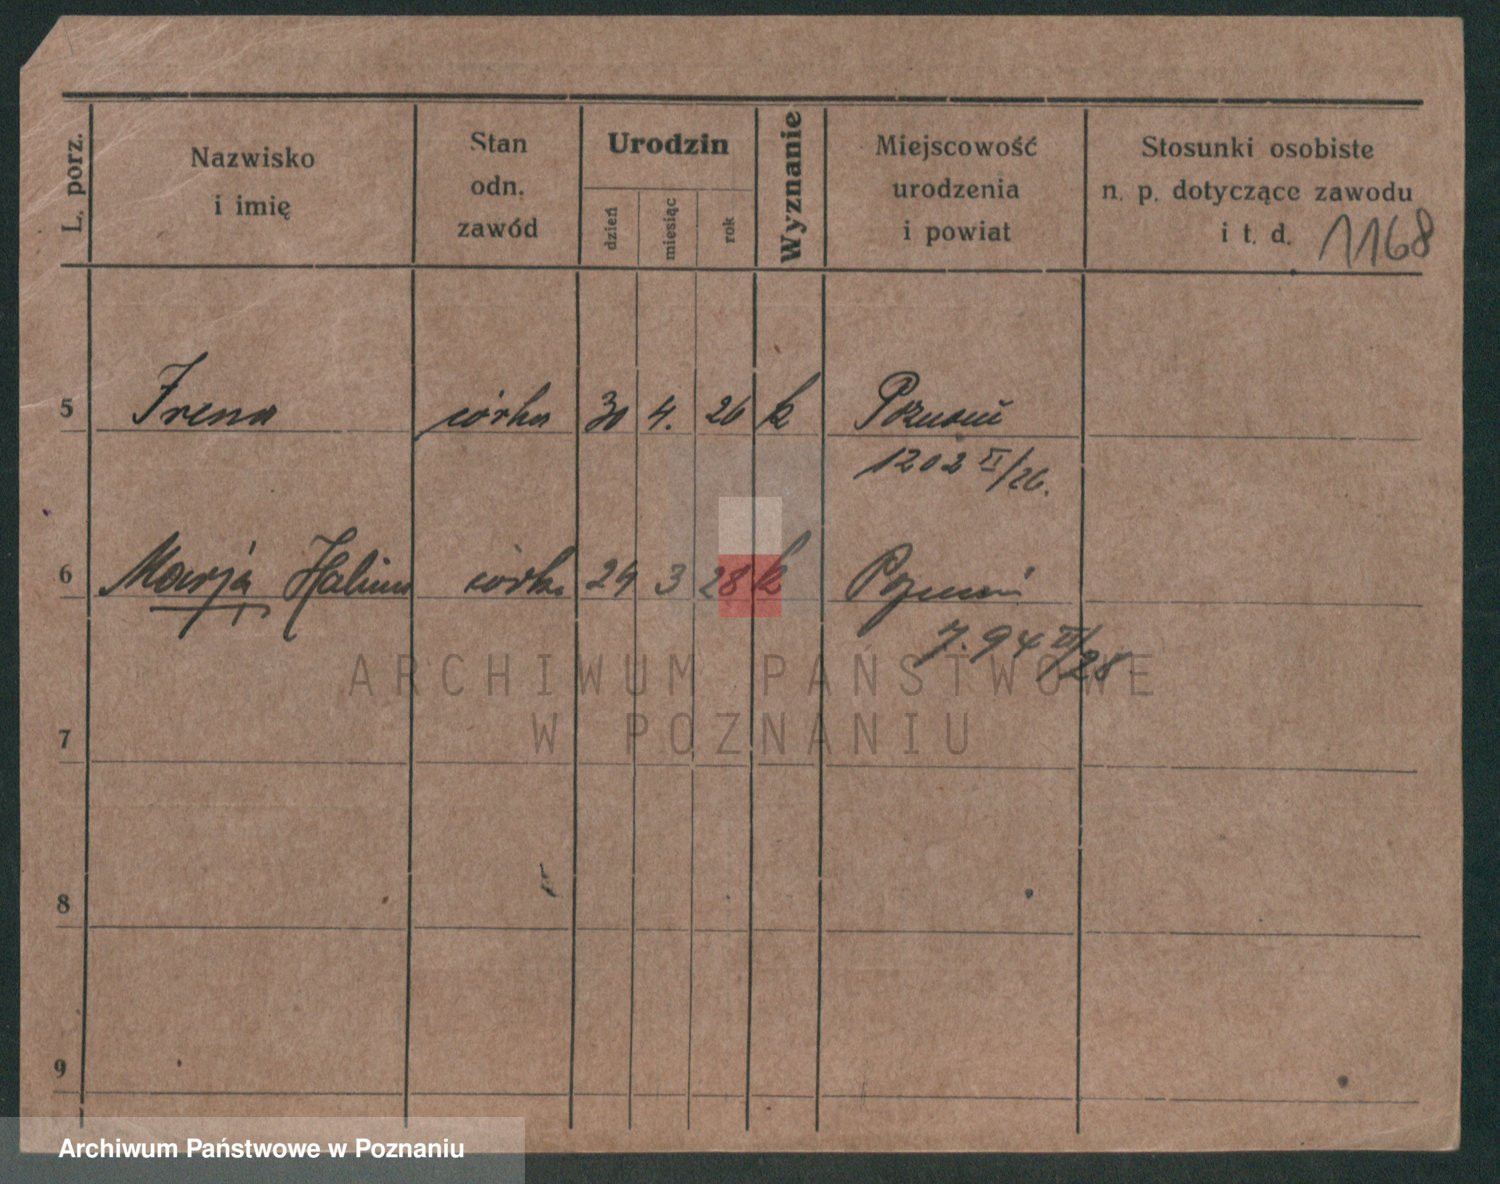 L. porz.
Nazwisko
i imię
Stan
odn.
zawód
Urodzin
dzień
miesiąc
rok
Wyznanie
Miejscowość
urodzenia
i powiat
Stosunki osobiste
n. p. dotyczące zawodu
i t. d.
1168
5 Irena córka 30 4. 26 k Poznań
1202 II/26.
6 Marja Halina córka 24 3 28 k Poznań
794 II/28
ARCHIWUM PAŃSTWOWE
W POZNANIU
7
8
9
Archiwum Państwowe w Poznaniu